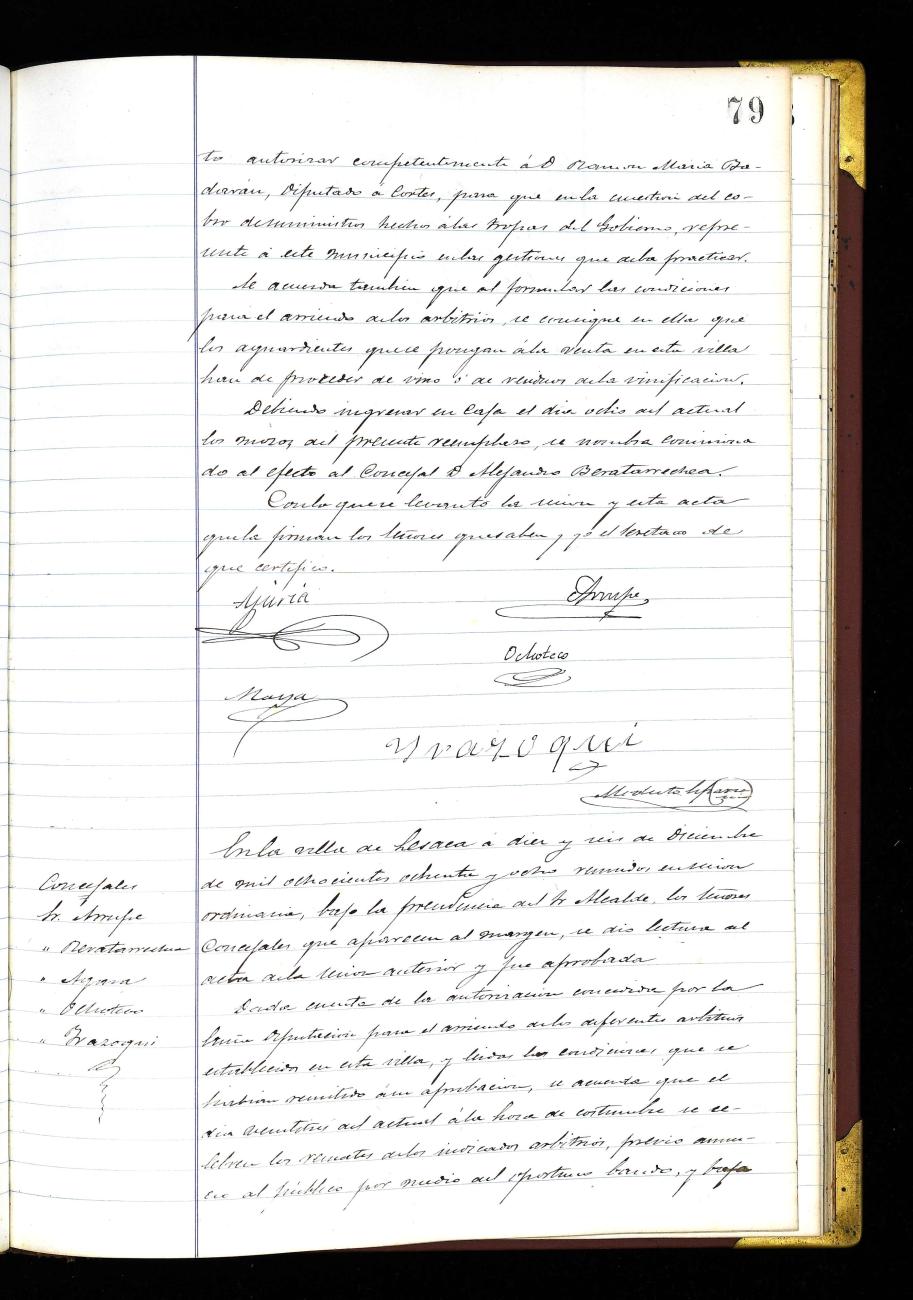 79
to autorizar competentemente á D Ramon Maria Ba-
darán, Diputado á Cortes, para que en la cuestion del co-
bro de suministros hechos á las tropas del Gobierno, repre-
sente á este municipio en las gestiones que deba practicar.
Se acuerda tambien que al formular las condiciones
para el arriendo de los arbitrios, se consigne en ella que
los aguardientes que se pongan á la venta en esta villa
han de proceder de vino ó de residuos de la vinificacion.
Debiendo ingresar en Caja el dia ocho del actual
los mozos del presente reemplazo, se nombra comisiona
do al efecto al Concejal D Alejandro Beratarrechea.
Con lo que se levantó la sesion y esta acta
que la firman los señores que saben y yo el Secretario de
que certifico.
Arrupe
Ochoteco
Maya
Yrazoqui
Modesto
En la villa de Lesaca á diez y seis de Diciembre
de mil ochocientos ochenta y ocho reunidos en sesion
ordinaria, bajo la presidencia del Sr Alcalde, los señores
Concejales que aparecen al margen, se dio lectura al
acta de la sesion anterior y fue aprobada
Dada cuenta de la autorizacion concedida por la
Excma Diputacion para el arriendo de los diferentes arbitrios
establecidos en esta villa, y leidas las condiciones que se
habian remitido á su aprobacion, se acuerda que el
dia veintitres del actual á la hora de costumbre se ce-
lebren los remates de los indicados arbitrios, previo anun-
cio al público por medio del oportuno bando, y bajo
Concejales
Sr. Arrupe
" Beratarrechea
" Ochoteco
" Yrazoqui